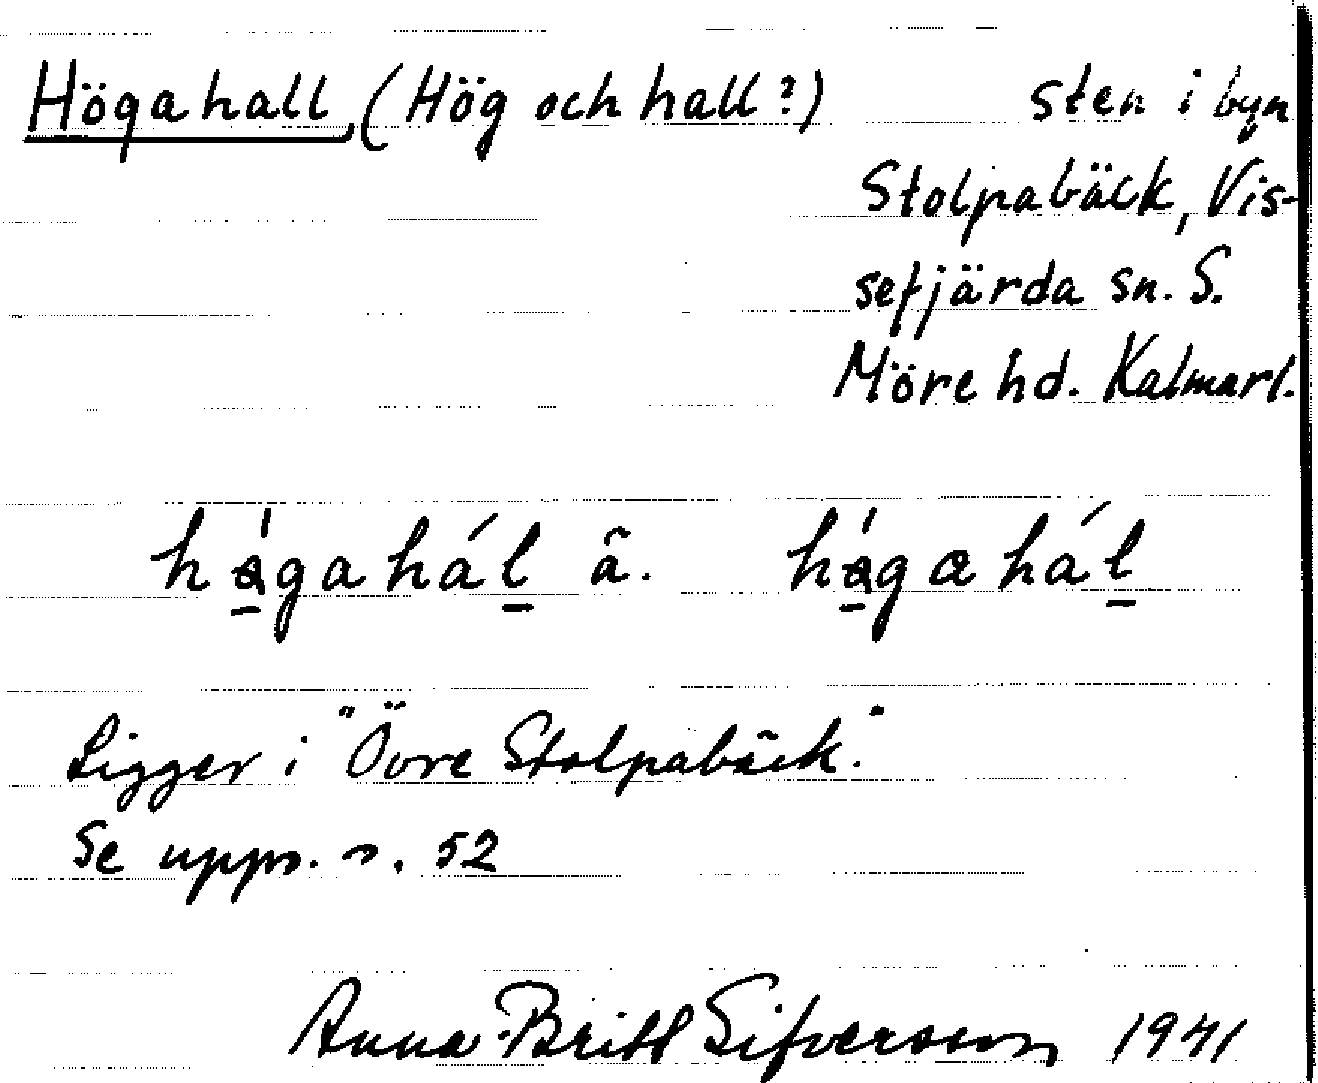 Högahall, (Hög och hall?) sten i byn
Stolpabäck, Vis-
sefjärda sn. S.
Möre hd. Kalmarl.
hə̱́gahál̲ ä. hə̱́gæhál̲
Ligger i "Övre Stolpabäck."
Se upps. s. 52
Anna-Britt Sifversson 1941